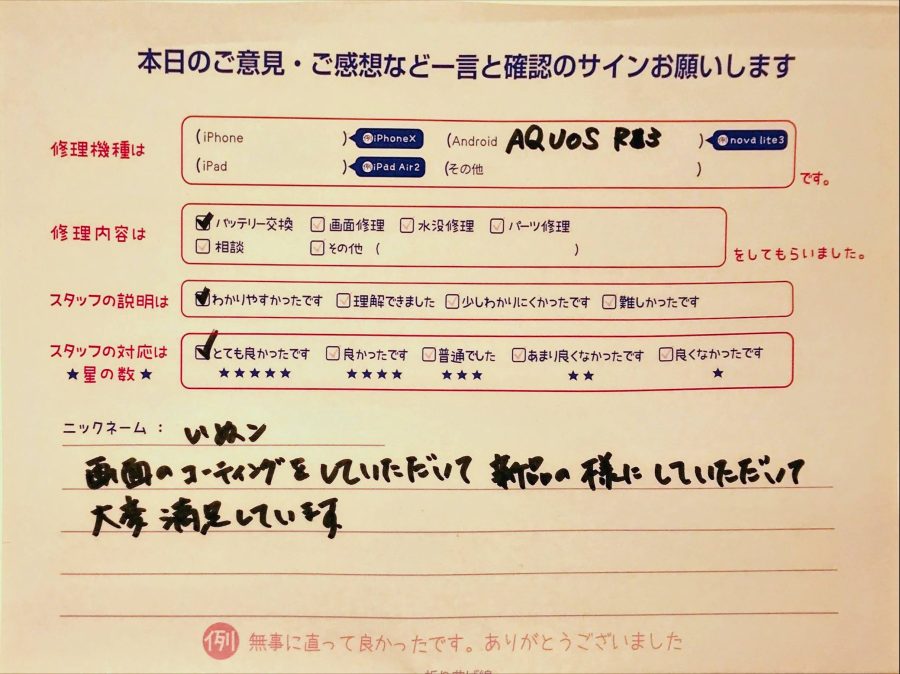 本日のご意見・ご感想など一言と確認のサインお願いします
修理機種は (iPhone ) iPhoneX (Android AQUOS R3 ) nova lite3
(iPad ) iPad Air2 (その他 ) です。
修理内容は バッテリー交換 画面修理 水没修理 パーツ修理
相談 その他 ( ) をしてもらいました。
スタッフの説明は わかりやすかったです 理解できました 少しわかりにくかったです 難しかったです
スタッフの対応は とても良かったです 良かったです 普通でした あまり良くなかったです 良くなかったです
★星の数★ ★★★★★ ★★★★ ★★★ ★★ ★
ニックネーム : いぬン
画面のコーティングをしていただいて 新品の様にしていただいて
大変満足しています
例 無事に直って良かったです。ありがとうございました